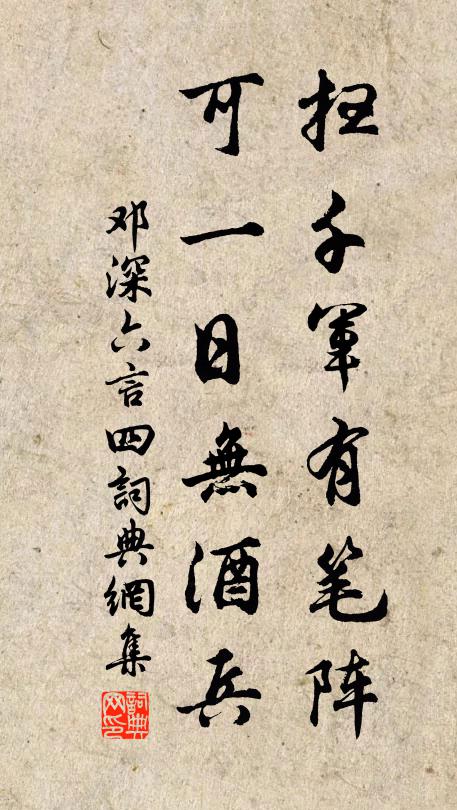 扫千军有笔阵
可一日無酒兵
邓深六言四詞典網集
詞典网印